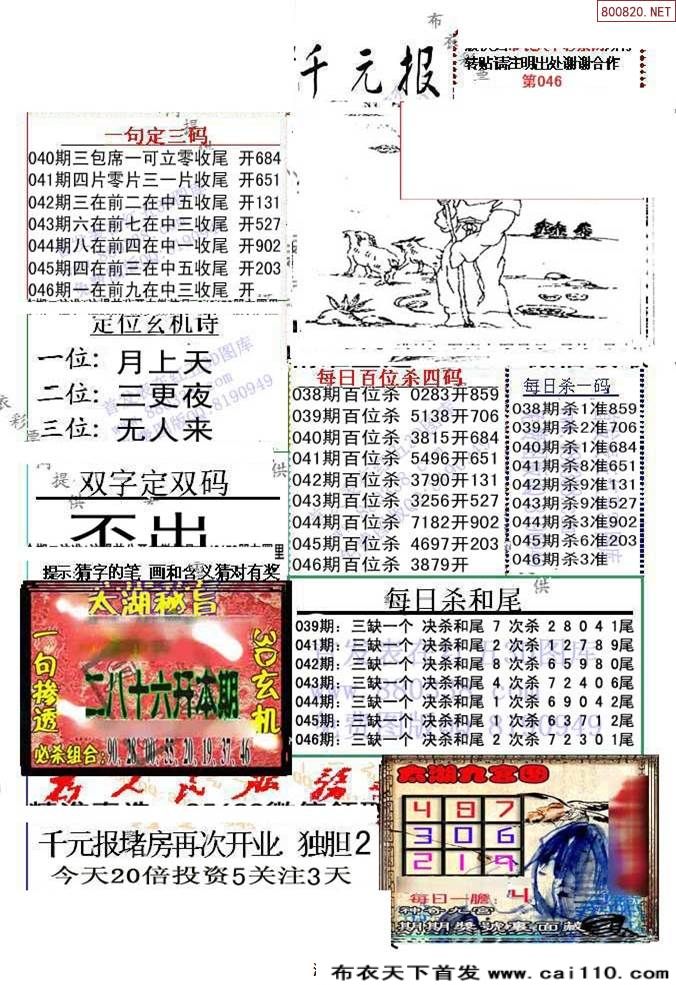 800820.NET
千元报
转贴请注明出处谢谢合作
第046
一句定三码
040期三包席一可立零收尾 开684
041期四片零片三一片收尾 开651
042期三在前二在中五收尾 开131
043期六在前七在中三收尾 开527
044期八在前四在中一收尾 开902
045期四在前三在中五收尾 开203
046期一在前九在中三收尾 开
定位玄机诗
一位: 月上天
二位: 三更夜
三位: 无人来
每日百位杀四码
038期百位杀 0283开859
039期百位杀 5138开706
040期百位杀 3815开684
041期百位杀 5496开651
042期百位杀 3790开131
043期百位杀 3256开527
044期百位杀 7182开902
045期百位杀 4697开203
046期百位杀 3879开
每日杀一码
038期杀1准859
039期杀2准706
040期杀1准684
041期杀8准651
042期杀9准131
043期杀9准527
044期杀3准902
045期杀6准203
046期杀3准
双字定双码
不出
提示:猜字的笔画和含义猜对有奖
太湖秘旨
一句掺透
二八十六开本期
3D玄机
必杀组合: 90,28,00,55,20,19,37,46
每日杀和尾
039期: 三缺一个 决杀和尾 7 次杀 2 8 0 4 1尾
041期: 三缺一个 决杀和尾 2 次杀 7 2 7 8 9尾
042期: 三缺一个 决杀和尾 8 次杀 6 5 9 8 0尾
043期: 三缺一个 决杀和尾 4 次杀 7 2 4 0 6尾
044期: 三缺一个 决杀和尾 1 次杀 6 9 0 4 2尾
045期: 三缺一个 决杀和尾 0 次杀 6 3 7 1 2尾
046期: 三缺一个 决杀和尾 2 次杀 7 2 3 0 1尾
千元报堵房再次开业 独胆2
今天20倍投资5关注3天
太湖九宫图
4 8 7
3 0 6
2 1 9
每日一胆: 4
神奇九宫
期期奖号里面藏
布衣天下首发 www.cai110.com